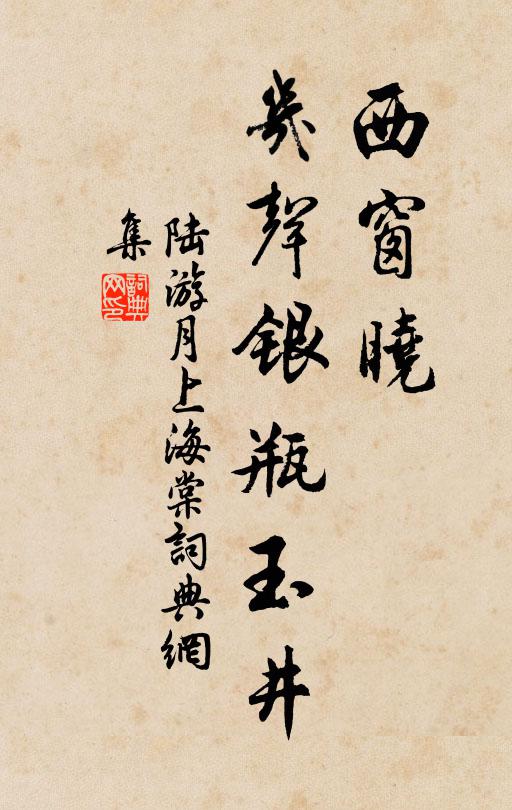 西窗曉
幾聲銀瓶玉井
陸游月上海棠詞典網
集
詞典
网印